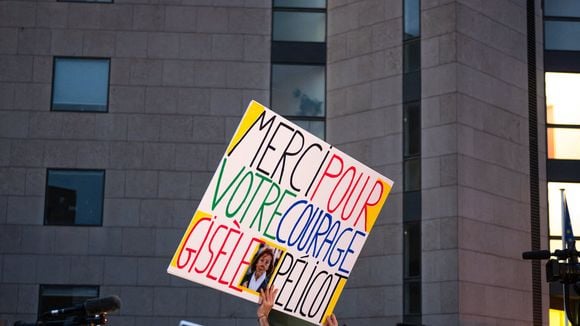 MERCI POUR
VOTRE COURAGE
GISÈLE PÉLICOT